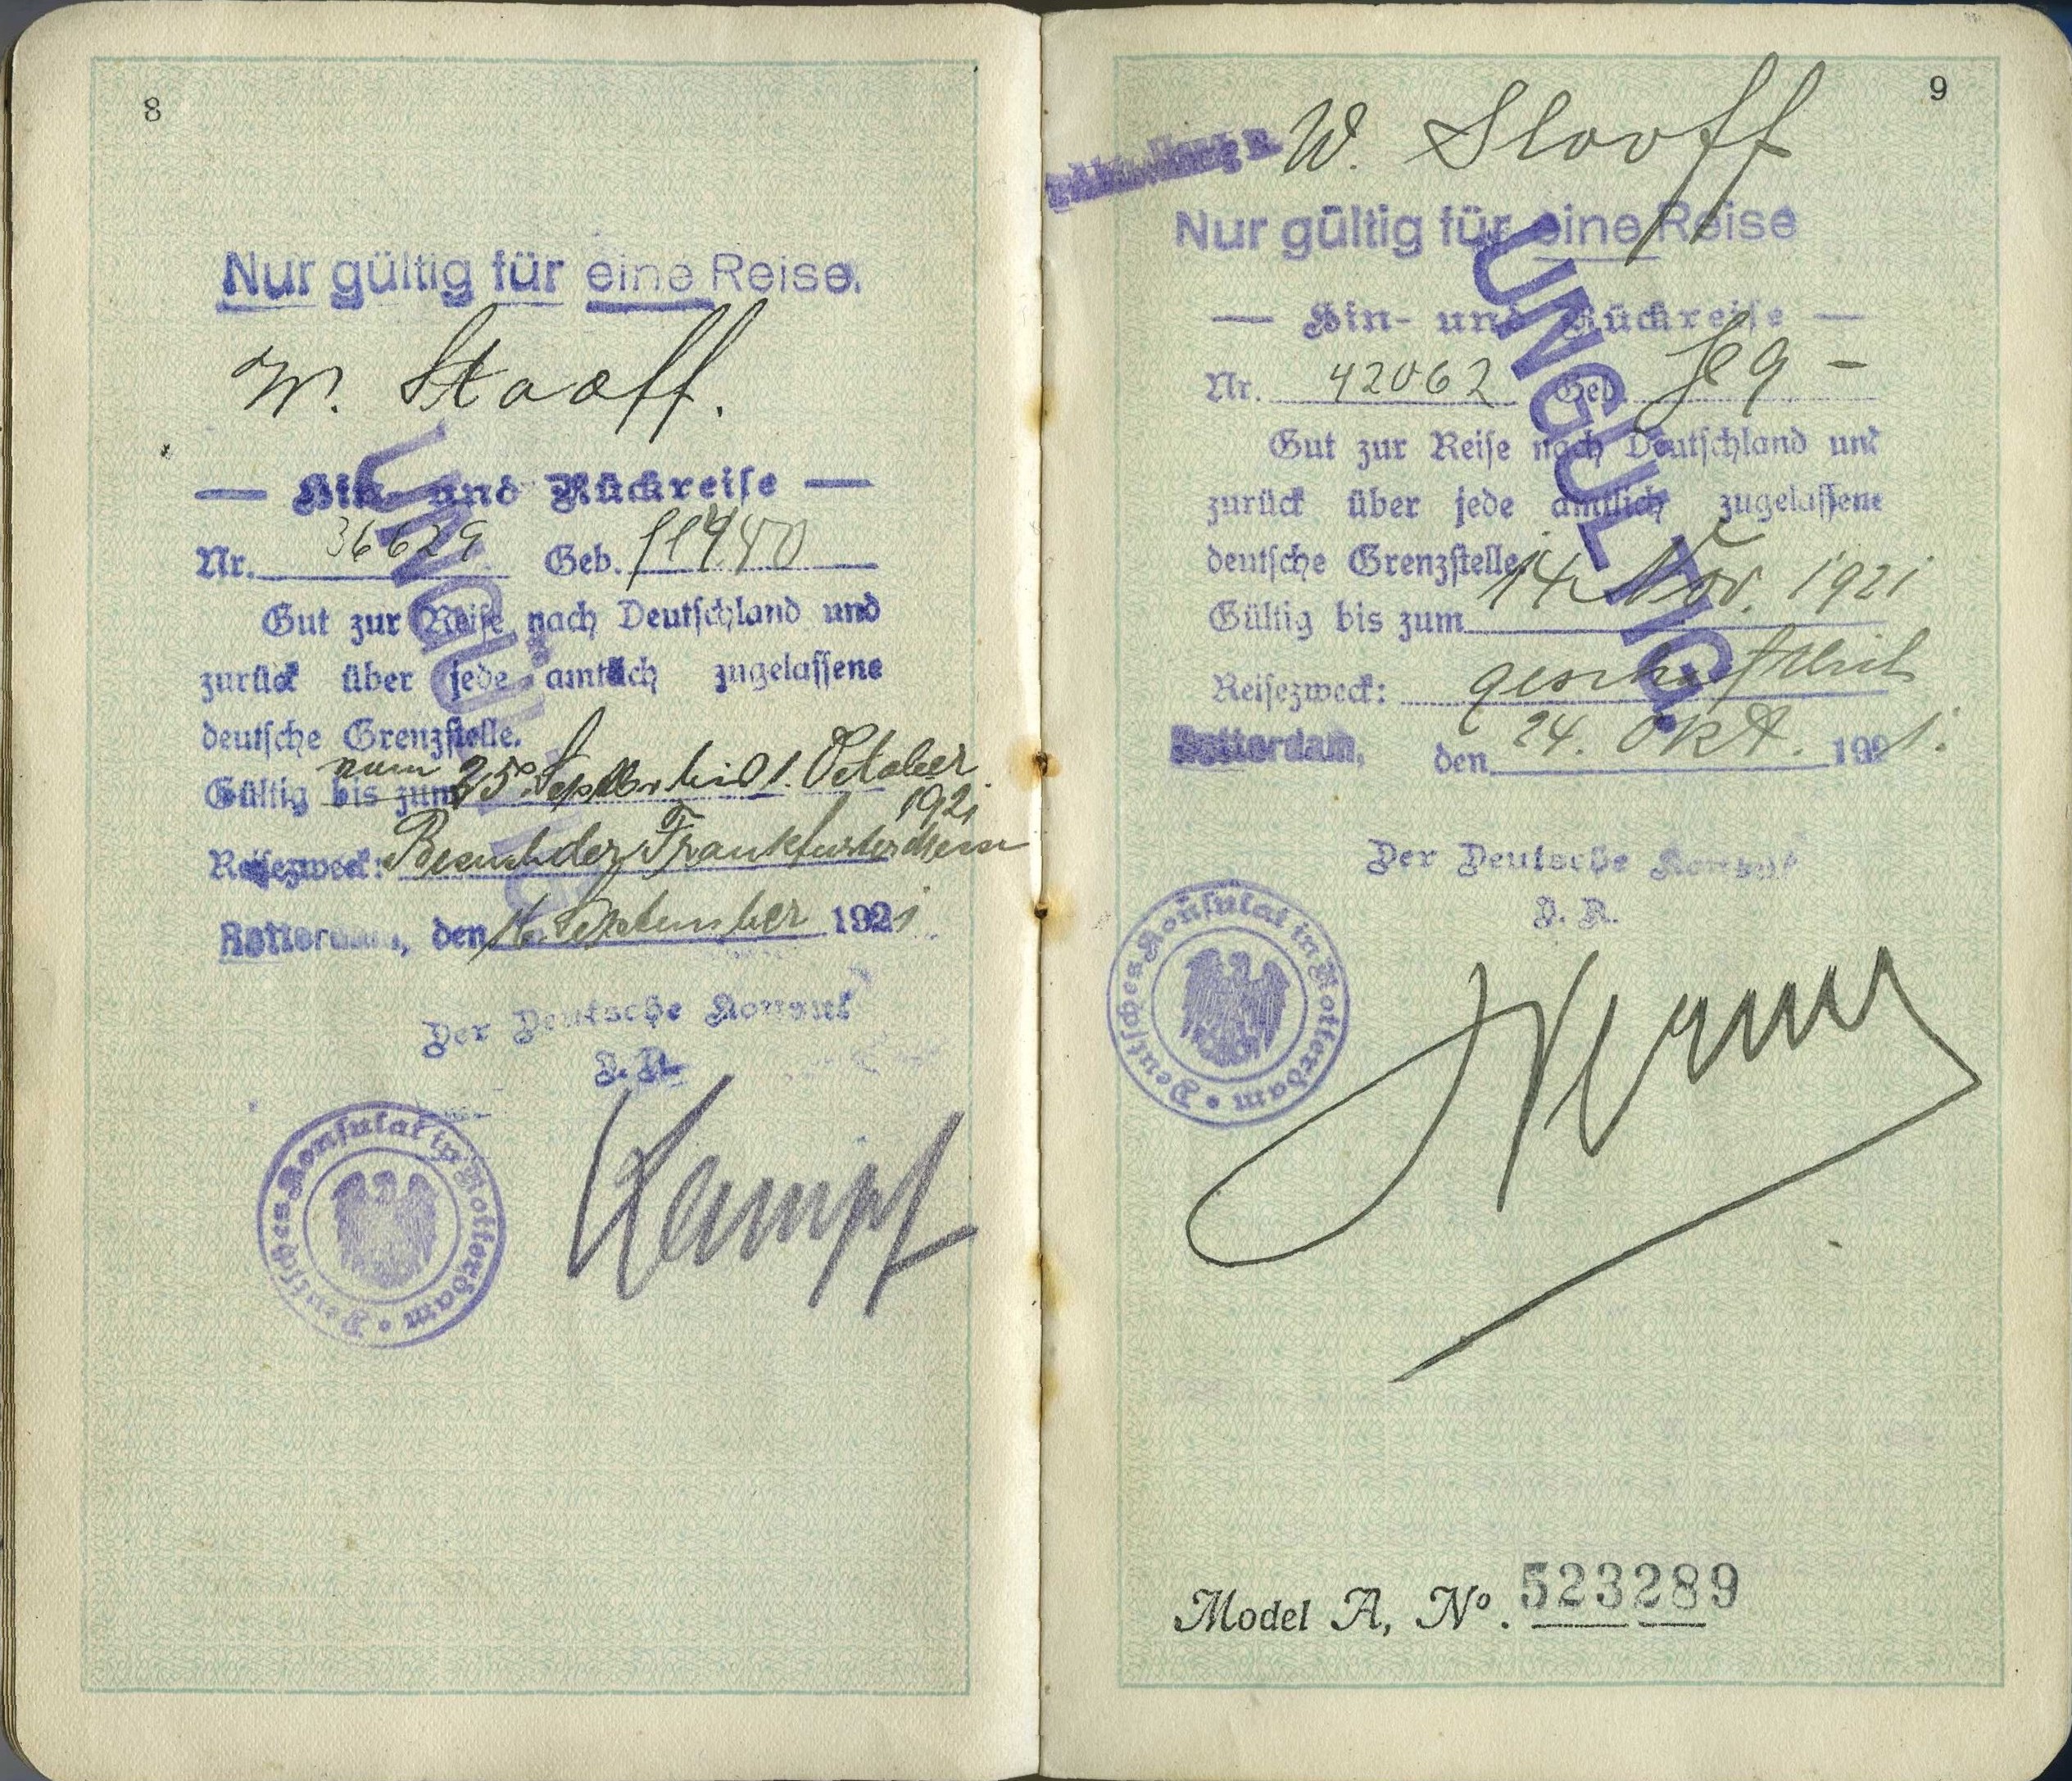 8
Nur gültig für eine Reise.
W. Slooff.
— Hin- und Rückreise —
Nr. 36629 Geb.
Gut zur Reise nach Deutschland und
zurück über jede amtlich zugelassene
deutsche Grenzstelle.
vom
Gültig bis zum 25. September bis 1. October
1921
Reisezweck: Besuch der Frankfurter Messe
Rotterdam, den 16. September 1921
Der Deutsche Konsul
J. A.
Kampf
Deutsches Konsulat in Rotterdam
UNGÜLTIG
9
W. Slooff
Nur gültig für eine Reise
— Hin- und Rückreise —
Nr. 42062 Geb. fl 9 –
Gut zur Reise nach Deutschland und
zurück über jede amtlich zugelassene
deutsche Grenzstelle.
Gültig bis zum 14 Nov. 1921
Reisezweck: geschäftlich
Rotterdam, den 24. Okt. 1921.
Der Deutsche Konsul
J. A.
Deutsches Konsulat in Rotterdam
UNGÜLTIG.
Model A, No. 523289